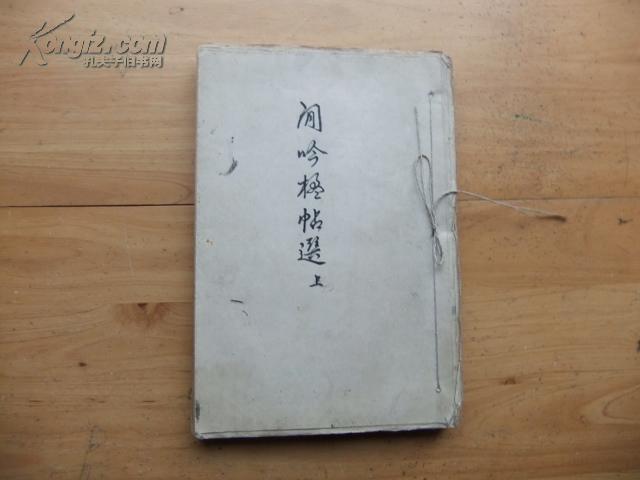 Kongfz.com
孔夫子旧书网
闲吟楹帖選上